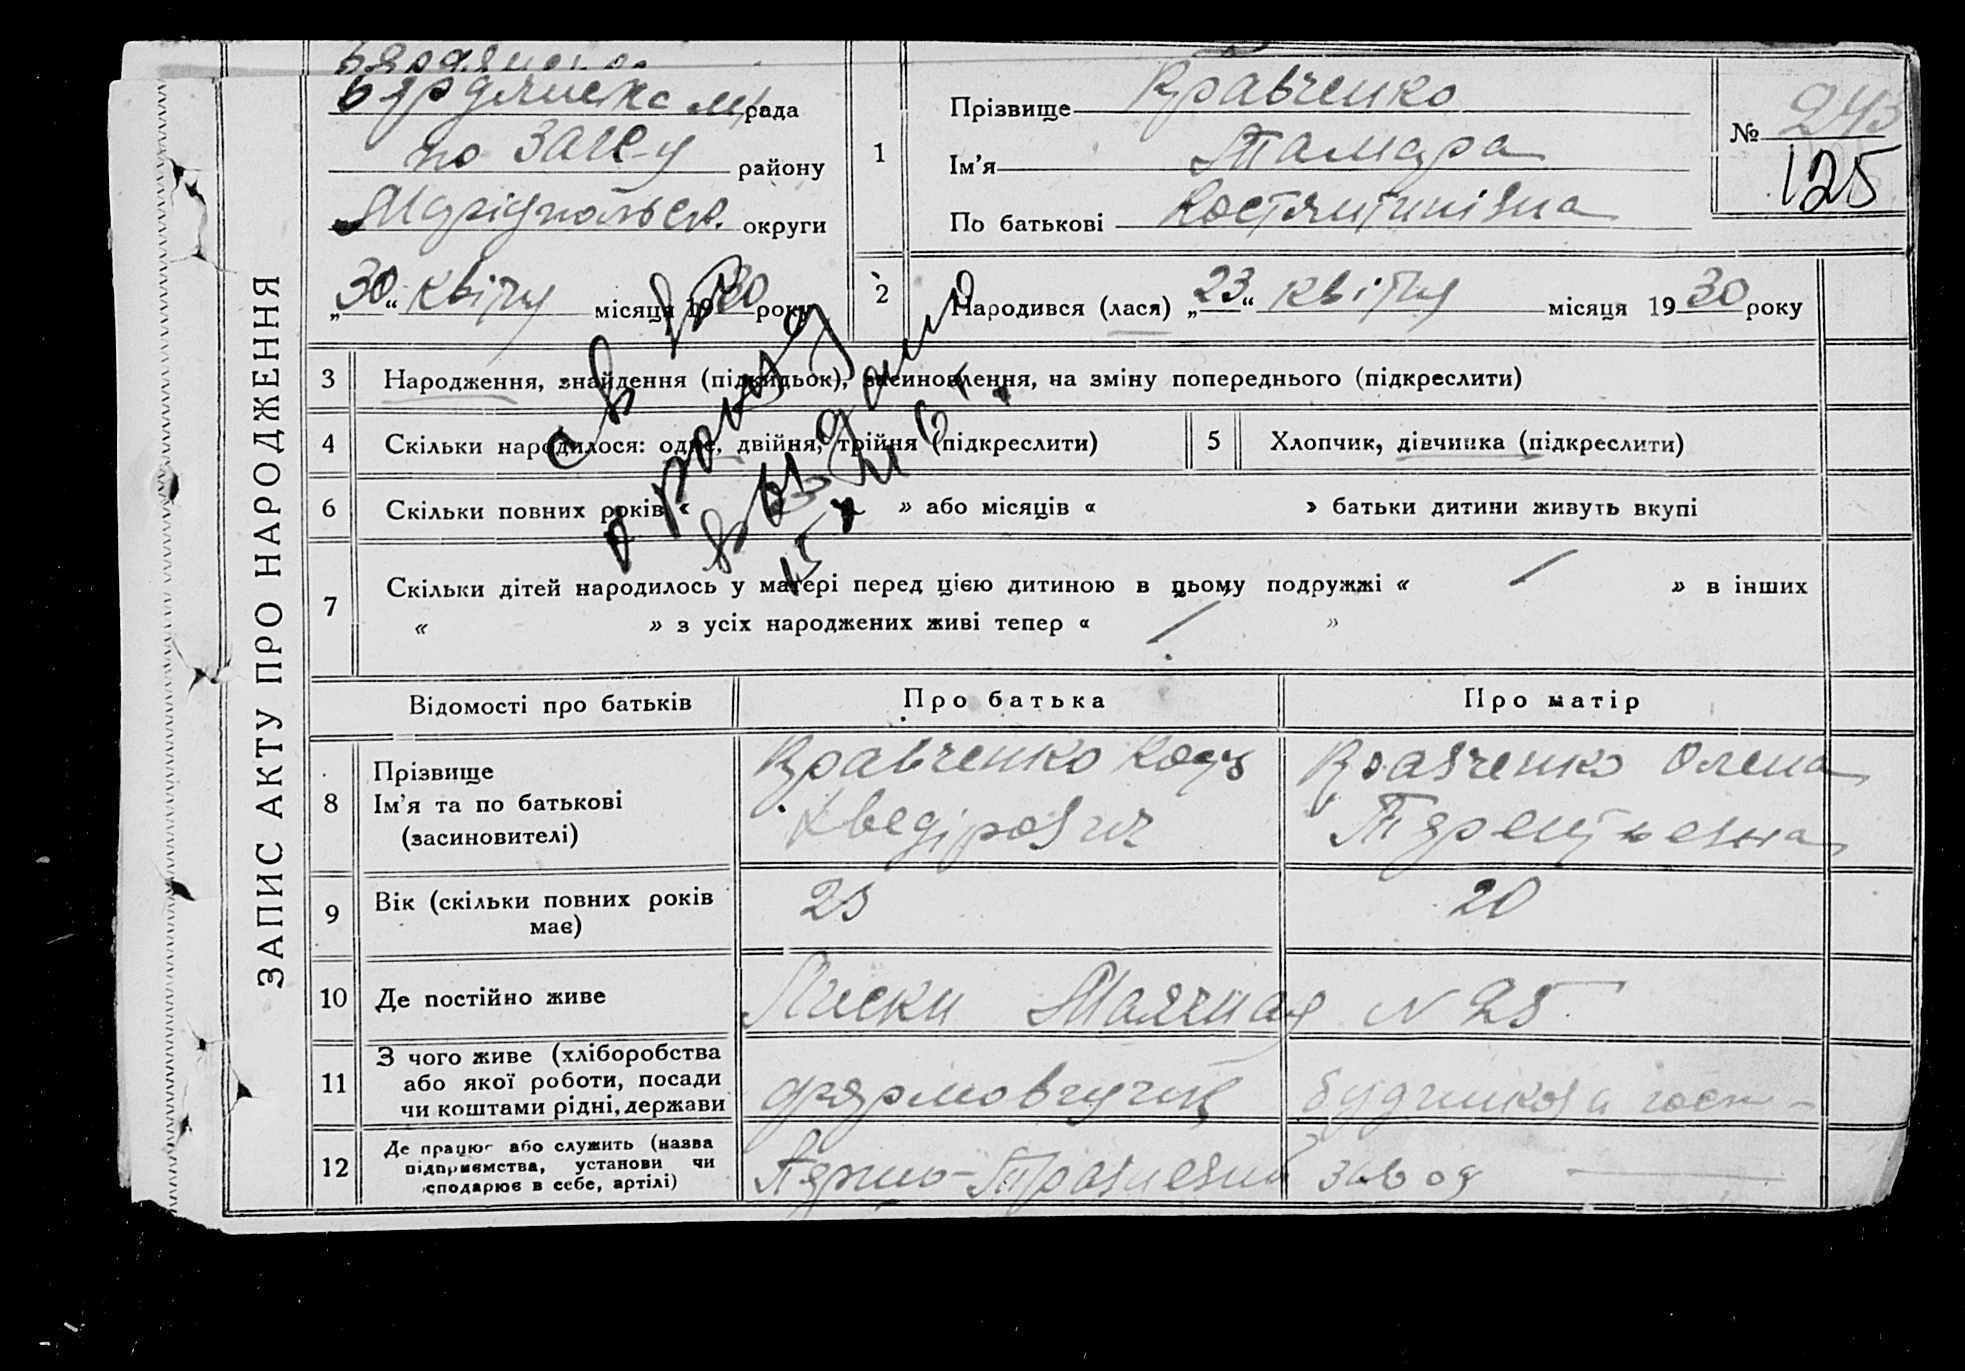 Бердянська м/рада
по Загс-у району
Маріупольськ. округи
„30“ квітня місяця 1930 року
1
Прізвище Кравченко
Ім'я Тамара
По батькові Костянтинівна
№ 243
125
2 Народився (лася) „23“ квітня місяця 1930 року
ЗАПИС АКТУ ПРО НАРОДЖЕННЯ
3 Народження, знайдення (підкидьок), засиновлення, на зміну попереднього (підкреслити)
4 Скільки народилося: одне, двійня, трійня (підкреслити)
5 Хлопчик, дівчинка (підкреслити)
6 Скільки повних років « » або місяців « » батьки дитини живуть вкупі
7 Скільки дітей народилось у матері перед цією дитиною в цьому подружжі « / » в інших
« » з усіх народжених живі тепер « / »
Відомості про батьків Про батька Про матір
8 Прізвище
Ім'я та по батькові
(засиновителі)
Кравченко
Кравченко Олена
9 Вік (скільки повних років
має)
23 20
10 Де постійно живе Лиски № 25
11 З чого живе (хліборобства
або якої роботи, посади
чи коштами рідні, держави
12 Де працює або служить (назва
підприємства, установи чи
сподарює в себе, артілі)
Першо-Травневий завод